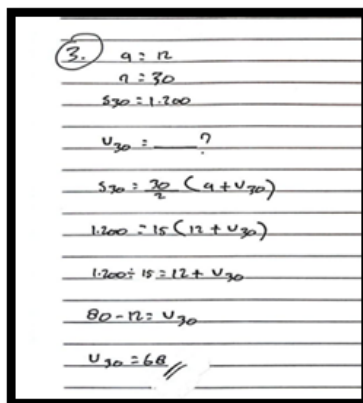 3. a = 12
n = 30
S30 = 1.200
U30 = ____ ?
S30 = 30/2 (a + U30)
1.200 = 15 (12 + U30)
1.200 ÷ 15 = 12 + U30
80 - 12 = U30
U30 = 68 //